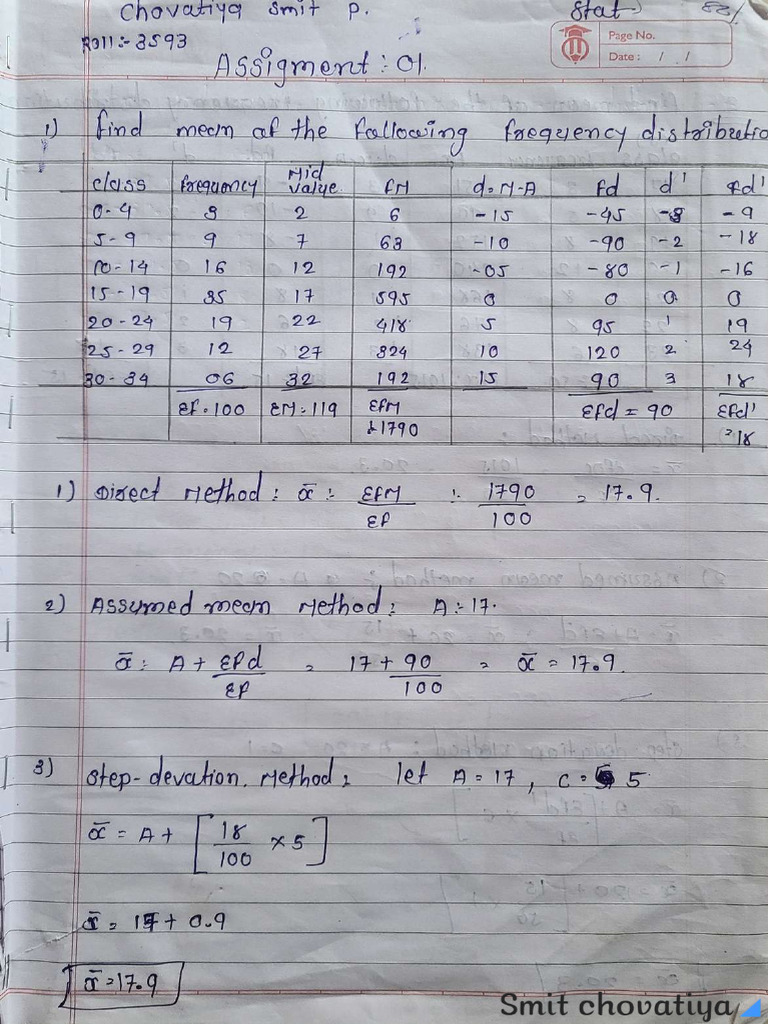 Chovatiya Smit P. Stat
Roll:- 3593
Page No.
Date: / /
Assigment: 01.
1) Find mean of the following frequency distributio
class frequency Mid value fM d=M-A fd d' fd'
0-4 3 2 6 -15 -45 -3 -9
5-9 9 7 63 -10 -90 -2 -18
10-14 16 12 192 -05 -80 -1 -16
15-19 35 17 595 0 0 0 0
20-24 19 22 418 5 95 1 19
25-29 12 27 324 10 120 2 24
30-34 06 32 192 15 90 3 18
Σf=100 ΣM=119 ΣfM=1790 Σfd = 90 Σfd'=18
1) Direct Method: x̄ = ΣfM/Σf = 1790/100 = 17.9.
2) Assumed mean Method: A=17.
x̄ = A + Σfd/Σf = 17 + 90/100 = x̄ = 17.9.
3) Step-devation. Method: let A=17, C=5
x̄ = A + [18/100 × 5]
x̄ = 17 + 0.9
x̄ = 17.9
Smit chovatiya